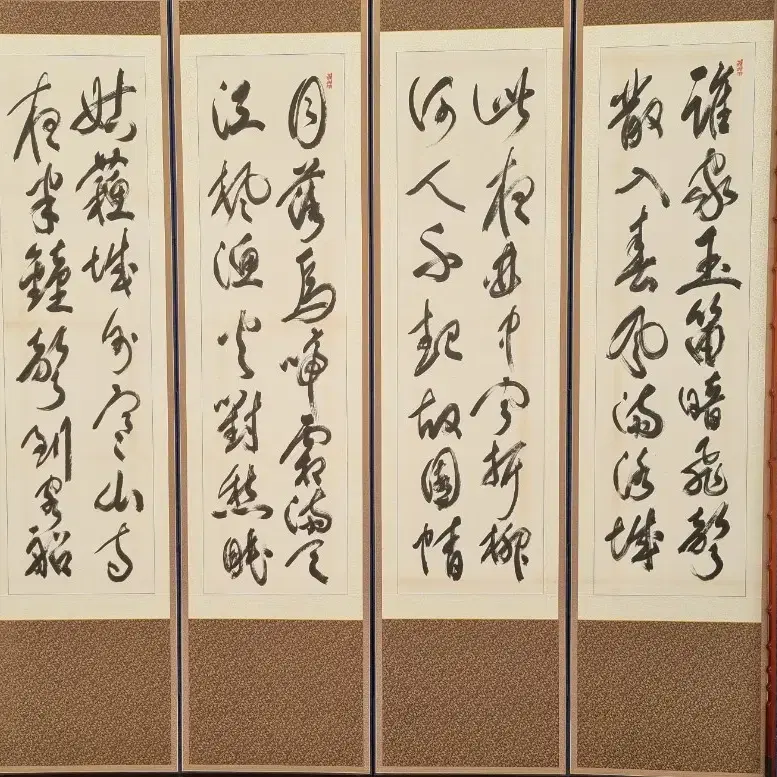 誰家玉笛暗飛聲
散入春風滿洛城
此夜曲中聞折柳
何人不起故園情
月落烏啼霜滿天
江楓漁火對愁眠
姑蘇城外寒山寺
夜半鐘聲到客船